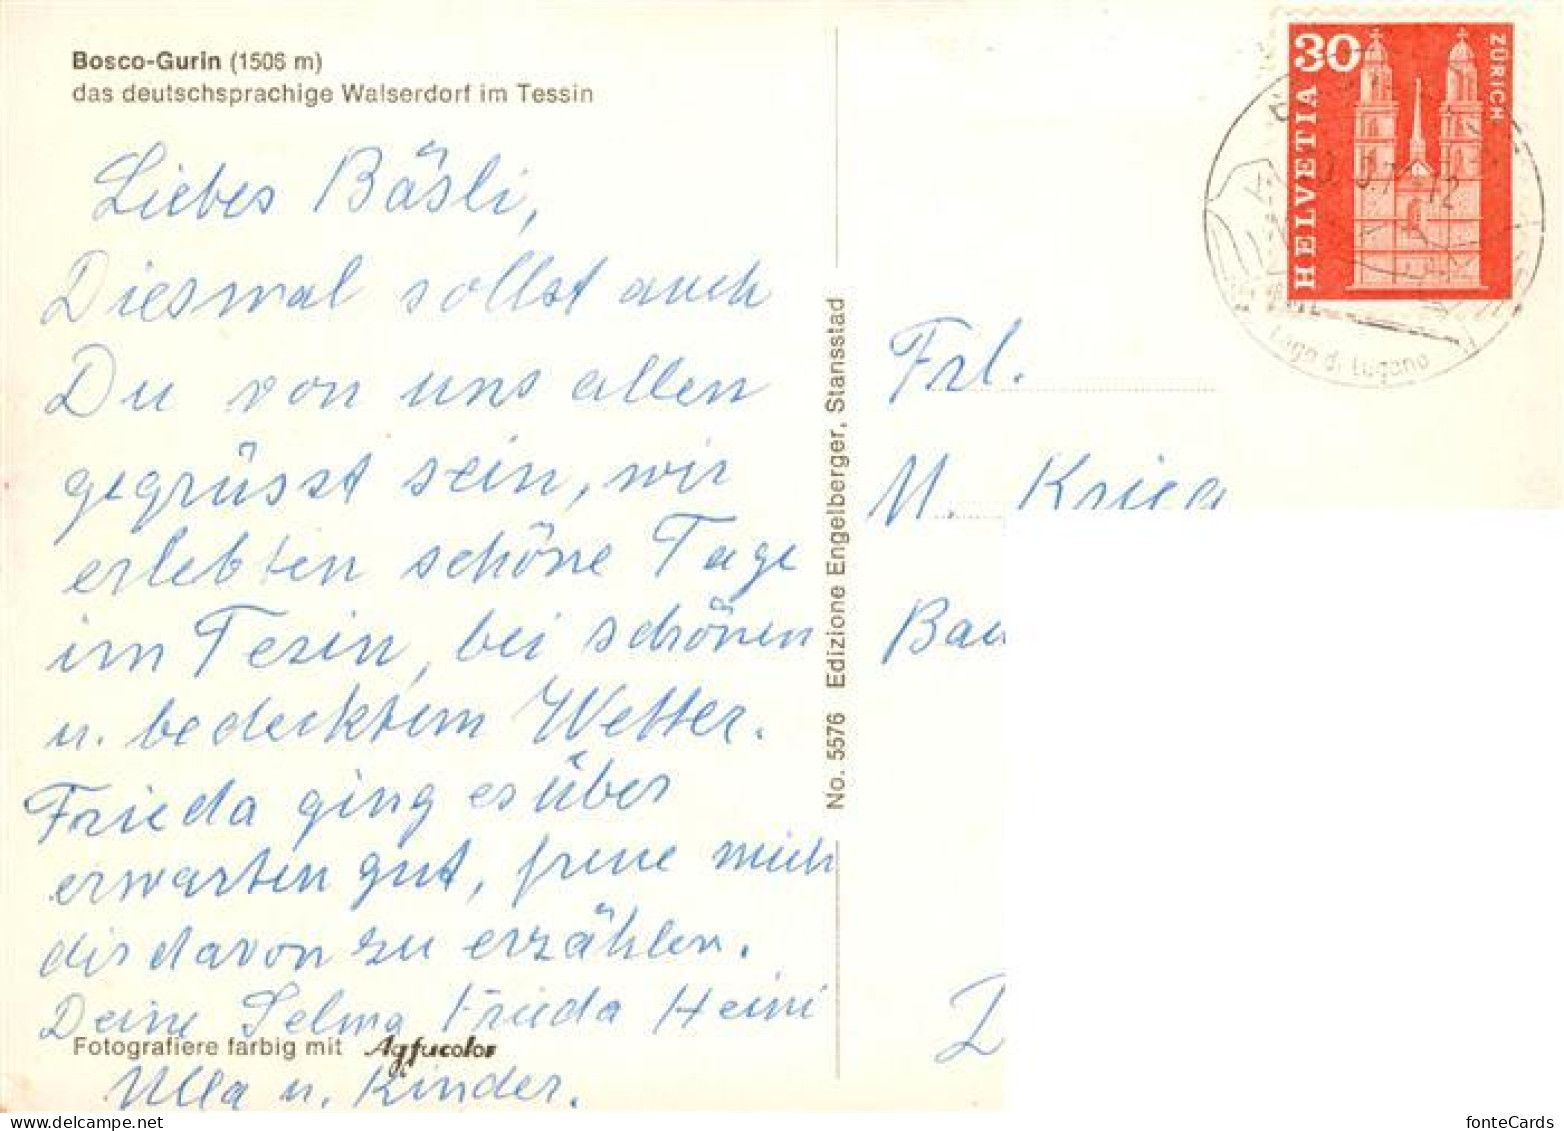 Bosco-Gurin (1506 m)
das deutschsprachige Walserdorf im Tessin
Liebes Bäsli,
Diesmal sollst auch
Du von uns allen
gegrüsst sein, wir
erlebten schöne Tage
im Tesin, bei schönen
u. bedecktem Wetter.
Frieda ging es über
erwarten gut, freue mich
dir davon zu erzählen.
Deine Selma Frieda Heini
Fotografiere farbig mit Agfacolor
Ulla u. Kinder.
No. 5576 Edizione Engelberger, Stansstad
30
HELVETIA
ZÜRICH
Lago di Lugano
Frl.
M. Krieg
Bau
fonteCards
delcampe.net